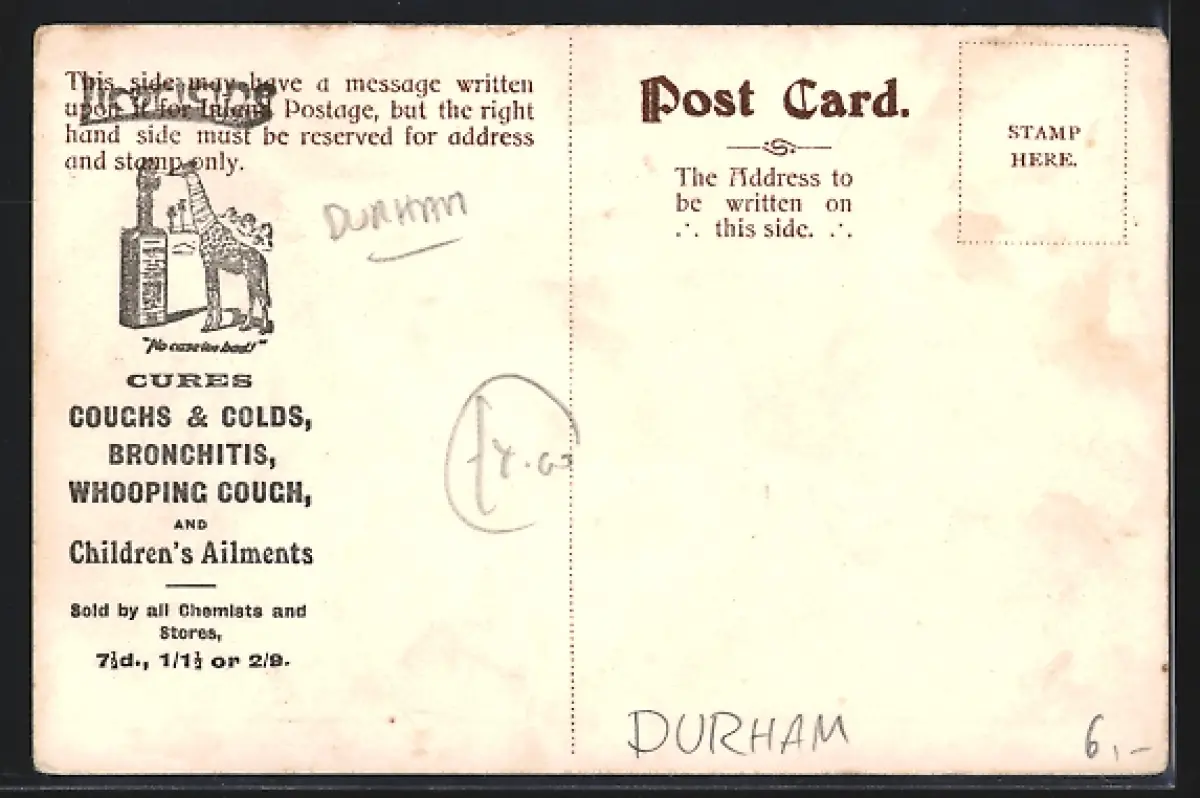 This side may have a message written
upon it for Inland Postage, but the right
hand side must be reserved for address
and stamp only.
DURHAM
"No case too bad!"
CURES
COUGHS & COLDS,
BRONCHITIS,
WHOOPING COUGH,
AND
Children's Ailments
Sold by all Chemists and
Stores,
7½d., 1/1½ or 2/9.
Post Card.
The Address to
be written on
∴ this side. ∴
STAMP
HERE.
DURHAM
6,-